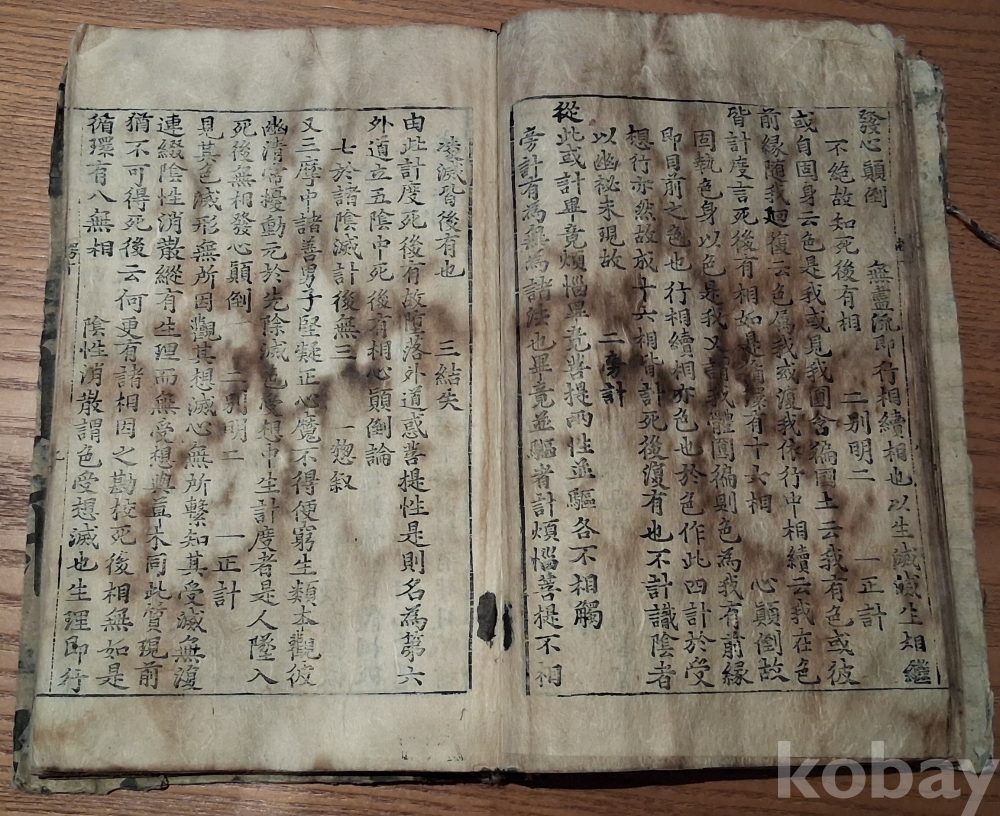 發心顚倒　無盡流即行相續相也以生滅滅生相繼
不絶故知死後有相　二別明二　一正計
或自固身云色是我或見我圓含徧國土云我有色或彼
前緣隨我廻復云色屬我或復我依行中相續云我在色
皆計度言死後有相如是循環有十六相　心顚倒故
固執色身以色是我又謂我體圓徧則色為我有前緣
即目前之色也行相續相亦色也於色作此四計於受
想行亦然故成十六相皆計死後復有也不計識陰者
以幽秘未現故　二旁計
從此或計畢竟煩惱畢竟菩提兩性並驅各不相觸
旁計有為無為諸法也畢竟並驅者計煩惱菩提不相
凌滅皆後有也　三結失
由此計度死後有故墮落外道惑菩提性是則名為第六
外道立五陰中死後有相心顚倒論
七於諸陰滅計後無三　一惣叙
又三摩中諸善男子堅凝正心魔不得便窮生類本觀彼
幽清常擾動元於先除滅色受想中生計度者是人墜入
死後無相發心顚倒　二別明二　一正計
見其色滅形無所因觀其想滅心無所繫知其受滅無復
連綴陰性消散縱有生理而無受想與草木同此質現前
猶不可得死後云何更有諸相因之勘校死後相無如是
循環有八無相　陰性消散謂色受想滅也生理即行
kobay